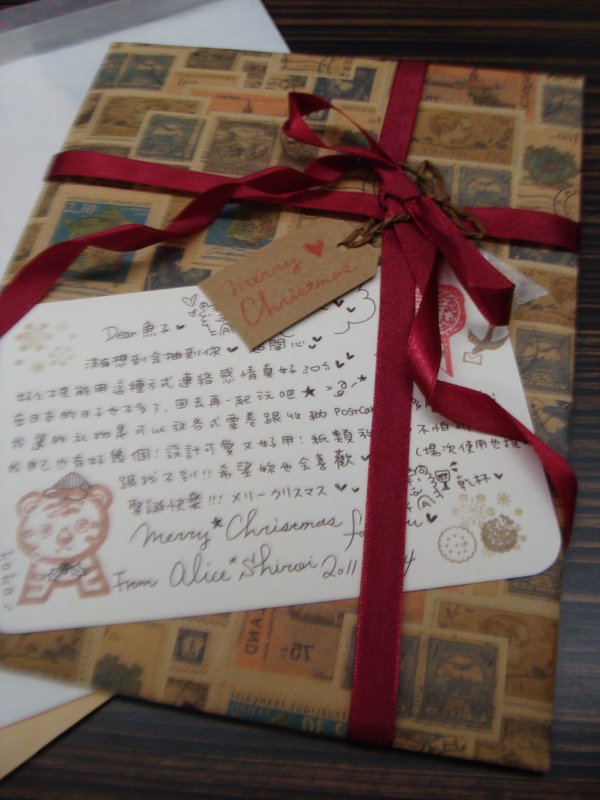 Merry
Christmas
Dear 魚子
沒有想到會抽到你 開心
能用這種方式連絡感情真好
在日本的日子也不多了，回去再一起玩吧
我選的禮物是可以放各式票卷跟收納 Postca
我自己也有好幾個！設計可愛又好用！紙類 不怕
跟找不到!! 希望妳也會喜歡 (場次使用也
聖誕快樂!!! メリークリスマス 乾杯
Merry Christmas fo u
From Alice*Shiroi 2011 4
REPUBLIQUE FRANÇAISE
75